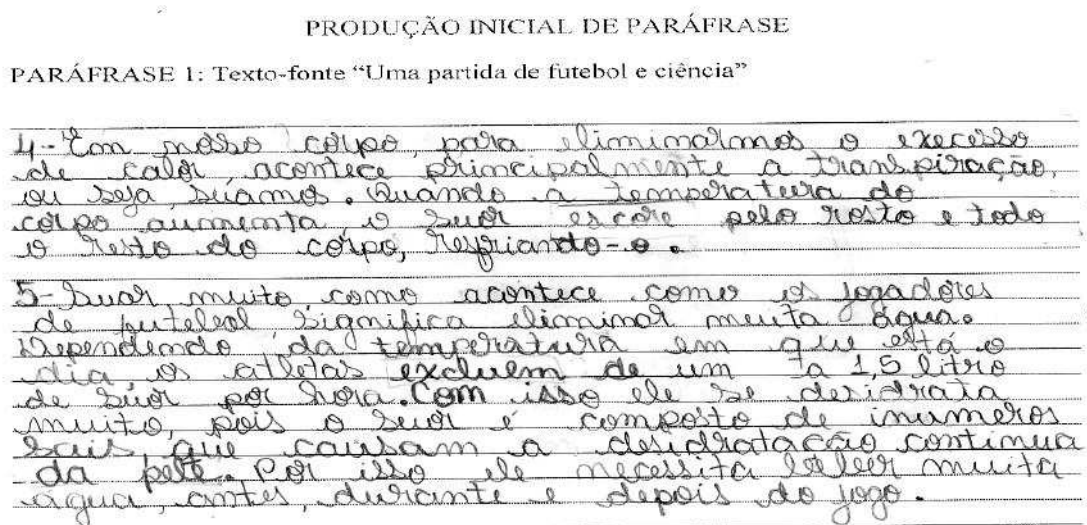 PRODUÇÃO INICIAL DE PARÁFRASE
PARÁFRASE 1: Texto-fonte “Uma partida de futebol e ciência”
4- Em nosso corpo, para eliminarmos o execesso
de calor, acontece principalmente a transpiração,
ou seja, suamos. Quando a temperatura do
corpo aumenta, o suor escore pelo rosto e todo
o resto do corpo, resfriando-o.
5- Suar muito, como acontece como os jogadores
de futebol, significa eliminar muita água.
Dependendo da temperatura em que está o
dia, os atletas excluem de um a 1,5 litro
de suor por hora. Com isso ele se desidrata
muito, pois o suor é composto de inumeros
sais, que causam a desidratação continua
da pele. Por isso ele necessita beber muita
água, antes, durante e depois do jogo.